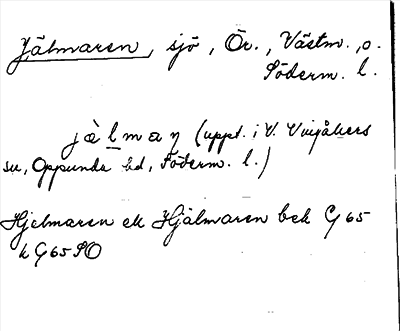 Hjälmaren, sjö, Ör., Västm., o.
Söderm. l.
jàlmaṇ (uppt. i V. Vingåkers
sn, Oppunda hd, Söderm. l.)
Hjelmaren ell Hjälmaren bek G 65
k G 65 SO